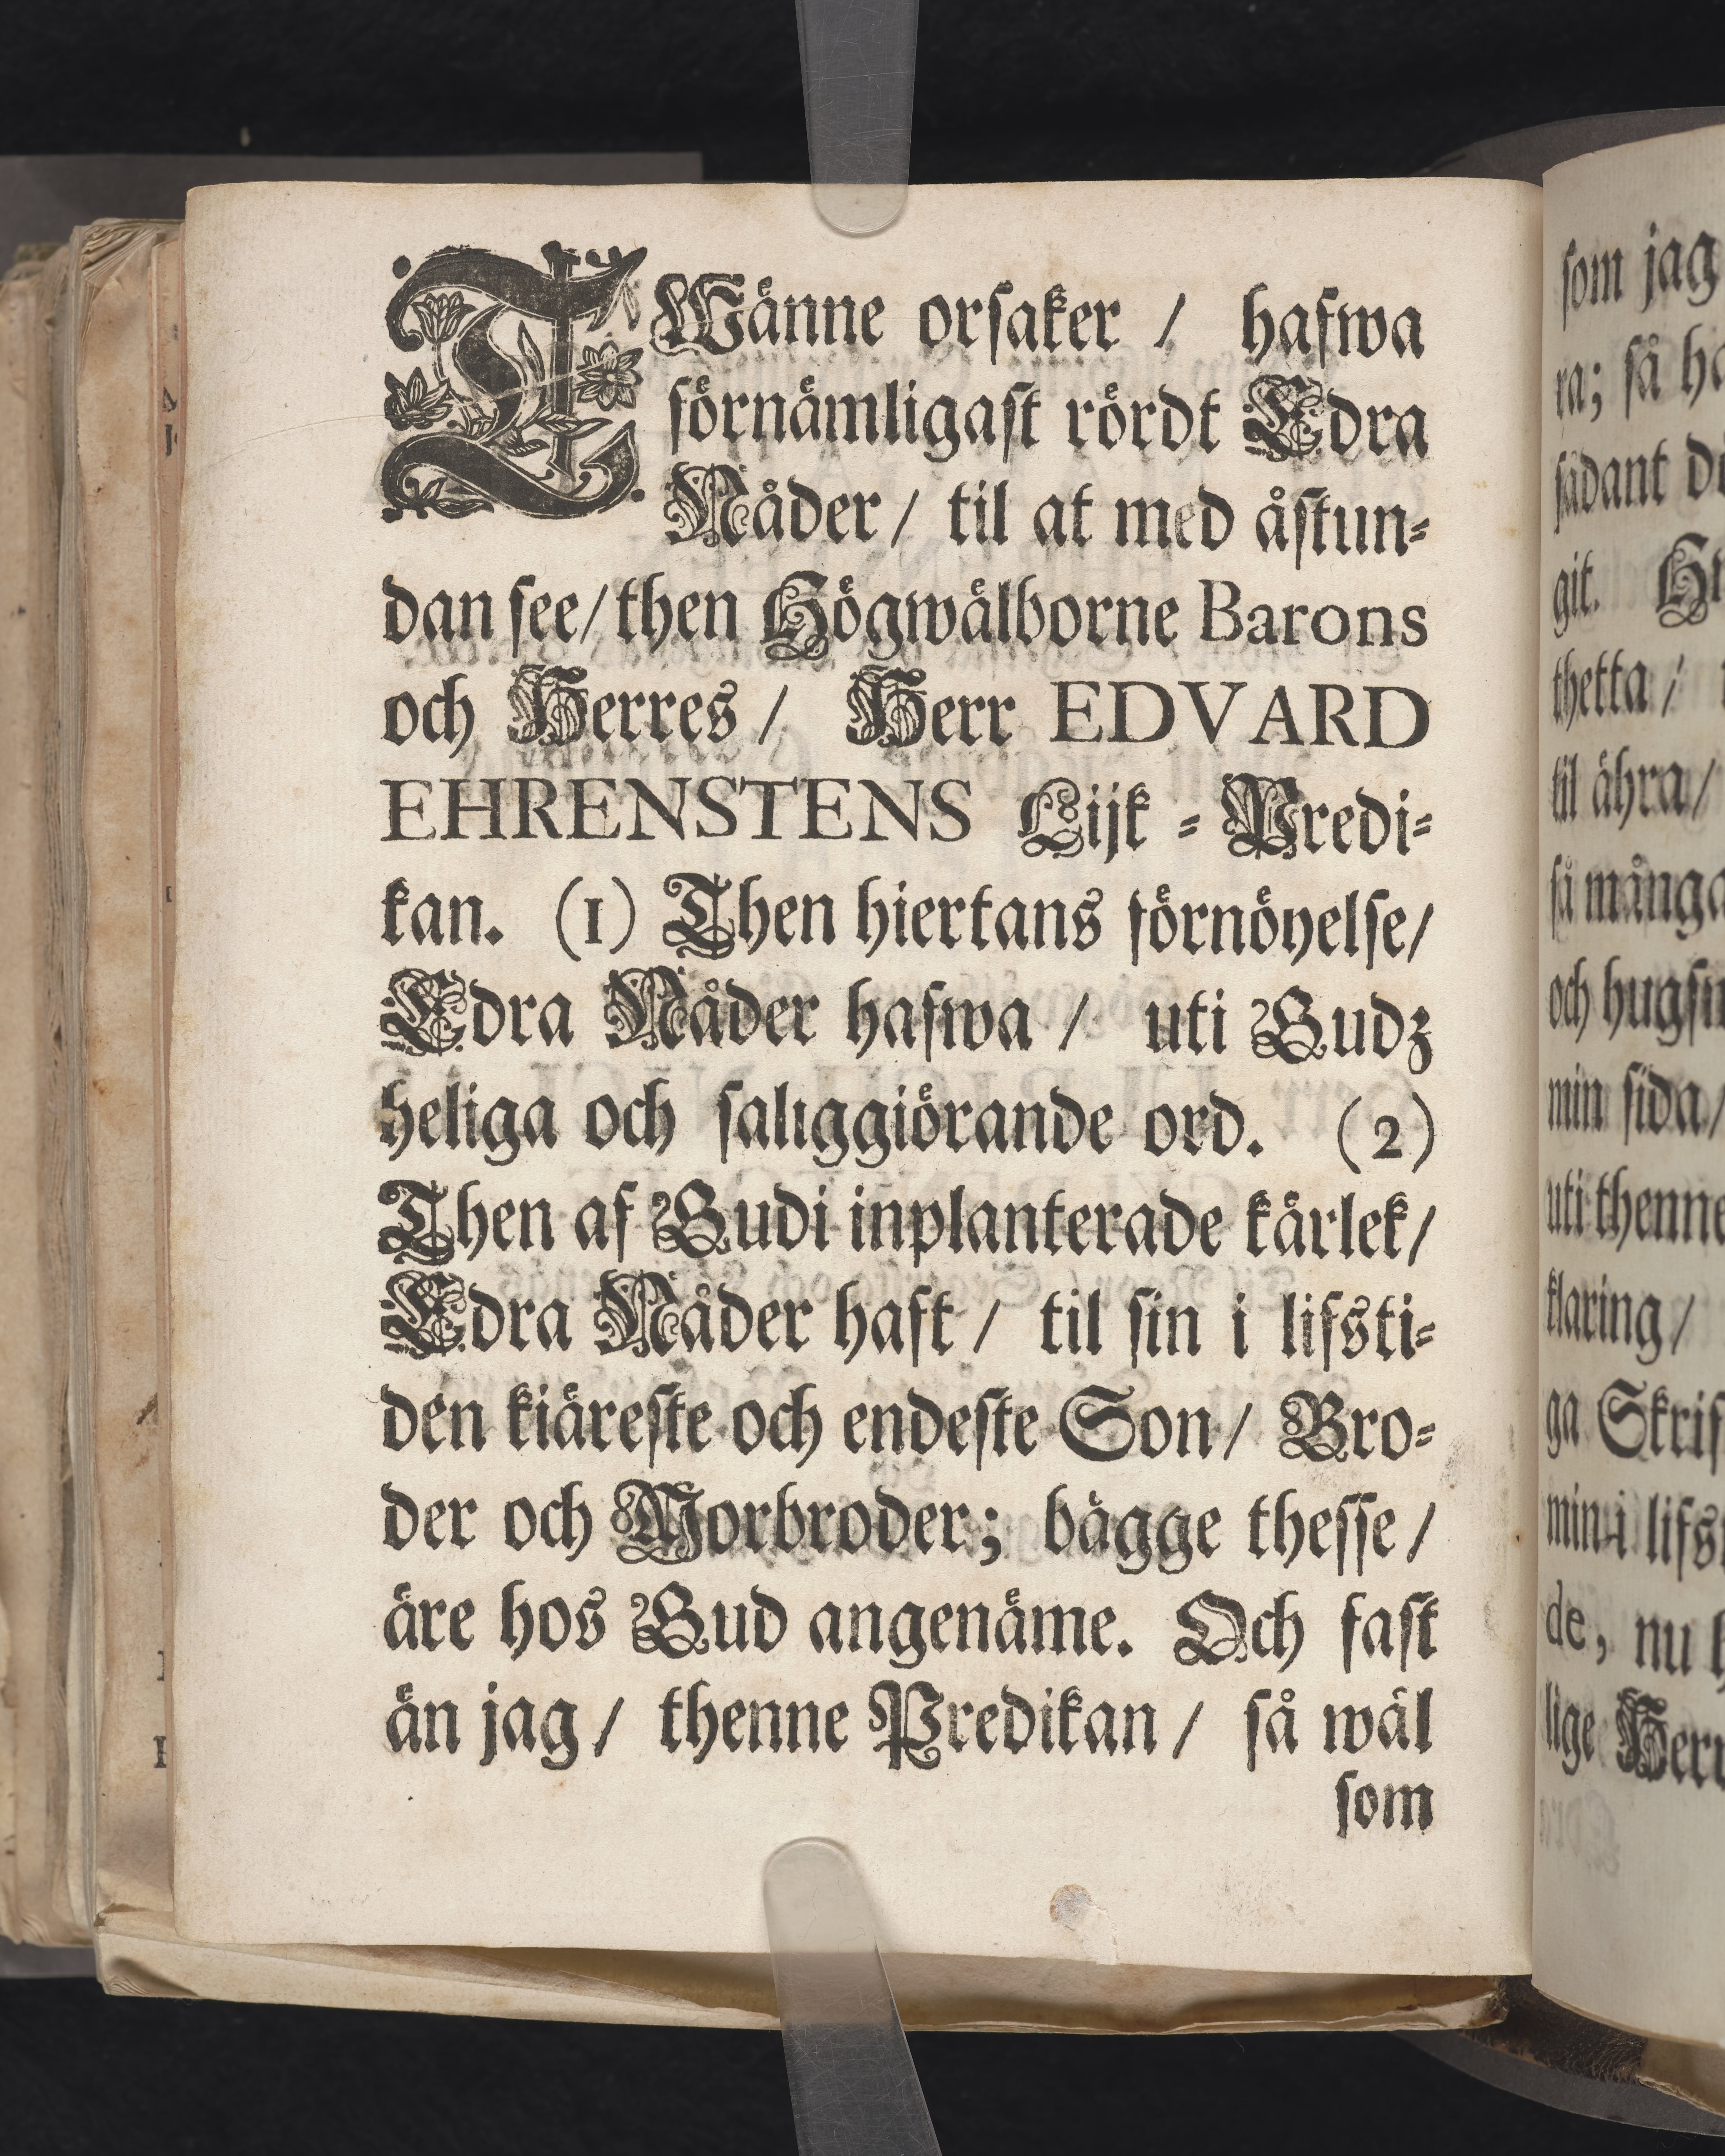 TWänne orsaker / hafwa
förnämligast rördt Edra
Nåder / til at med åstun⸗
dan see / then Högwälborne Barons
och Herres / Herr EDVARD
EHRENSTENS Lijk ⸗ Predi⸗
kan. (1) Then hiertans förnöyelse /
Edra Nåder hafwa / uti Gudz
heliga och saliggiörande ord. (2)
Then af Gudi inplanterade kärlek /
Edra Nåder haft / til sin i lifsti⸗
den kiäreste och endeste Son / Bro⸗
der och Morbroder; bägge thesse /
äre hos Gud angenäme. Och fast
än jag / thenne Predikan / så wäl
som
som jag
ra; så
sådant
git.
thetta /
til ähra /
så många
och
min sida /
uti thenne
klaring /
ga
min i
de, nu
lige